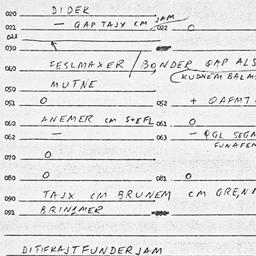 020 DIDEK
021 — GAPTAJX CM JAM 022 0
023
030
040 FESLMAXER / BONDER GAP ALS
(KUDNEM BALM
050 MUTNE
051 0 052 + QAFMT
060 ANEMER CM S+EFL 061 0
062 — 063 — QGL SEGM
FUNAFEM
070 0
080 0 081 0
090 TAJX CM BRUNEM CM GREN
091 BRINEMER
DITIFKAJTFUNDERJAM